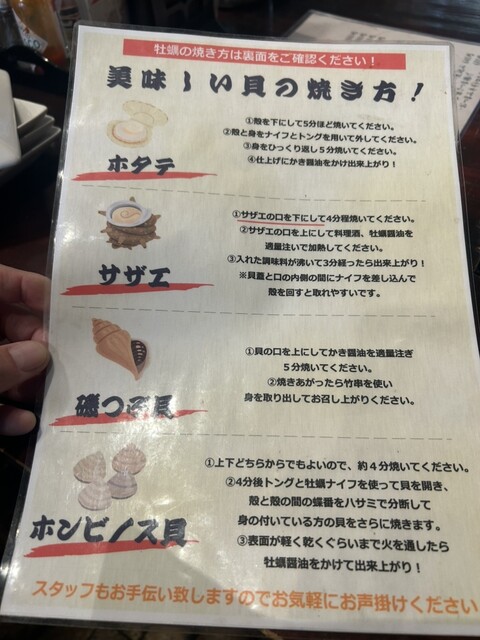 牡蠣の焼き方は裏面をご確認ください！
美味〜い貝の焼き方！
ホタテ
①殻を下にして5分ほど焼いてください。
②殻と身をナイフとトングを用いて外してください。
③身をひっくり返し５分焼いてください。
④仕上げにかき醤油をかけ出来上がり！
サザエ
①サザエの口を下にして4分程焼いてください。
②サザエの口を上にして料理酒、牡蠣醤油を
適量注いで加熱してください。
③入れた調味料が沸いて3分経ったら出来上がり！
※貝蓋と口の内側の間にナイフを差し込んで
殻を回すと取れやすいです。
磯つぶ貝
①貝の口を上にしてかき醤油を適量注ぎ
５分焼いてください。
②焼きあがったら竹串を使い
身を取り出してお召し上がりください。
ホンビノス貝
①上下どちらからでもよいので、約４分焼いてください。
②4分後トングと牡蠣ナイフを使って貝を開き、
殻と殻の間の蝶番をハサミで分断して
身の付いている方の貝をさらに焼きます。
③表面が軽く乾くぐらいまで火を通したら
牡蠣醤油をかけて出来上がり！
スタッフもお手伝い致しますのでお気軽にお声掛けください